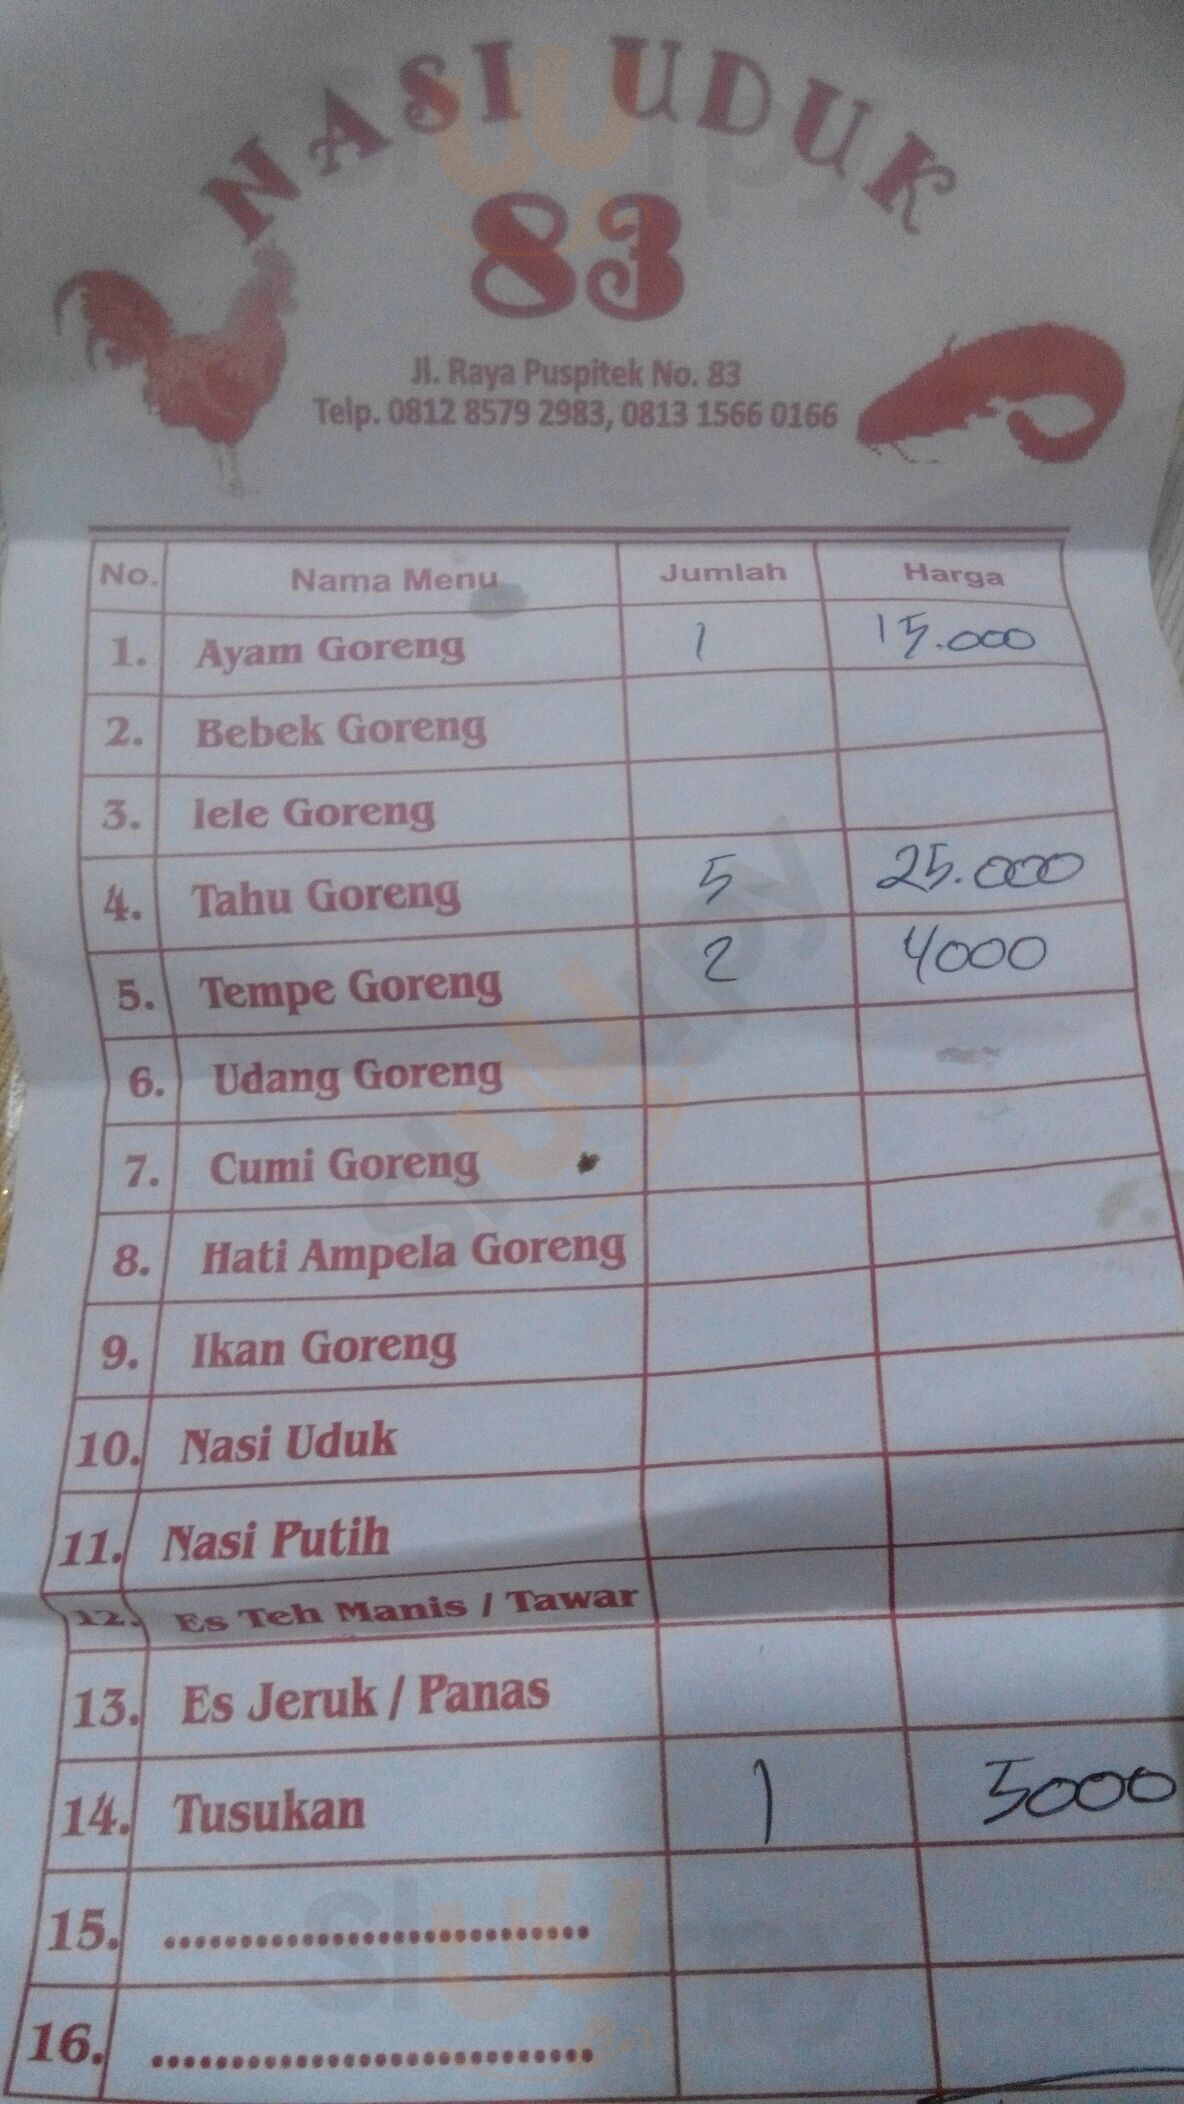 NASI UDUK
83
Jl. Raya Puspitek No. 83
Telp. 0812 8579 2983, 0813 1566 0166
No. Nama Menu Jumlah Harga
1. Ayam Goreng 1 15.000
2. Bebek Goreng
3. lele Goreng
4. Tahu Goreng 5 25.000
5. Tempe Goreng 2 4000
6. Udang Goreng
7. Cumi Goreng
8. Hati Ampela Goreng
9. Ikan Goreng
10. Nasi Uduk
11. Nasi Putih
12. Es Teh Manis / Tawar
13. Es Jeruk / Panas
14. Tusukan 1 5000
15. ............................
16. ............................
sluurpy
sluurpy
sluurpy